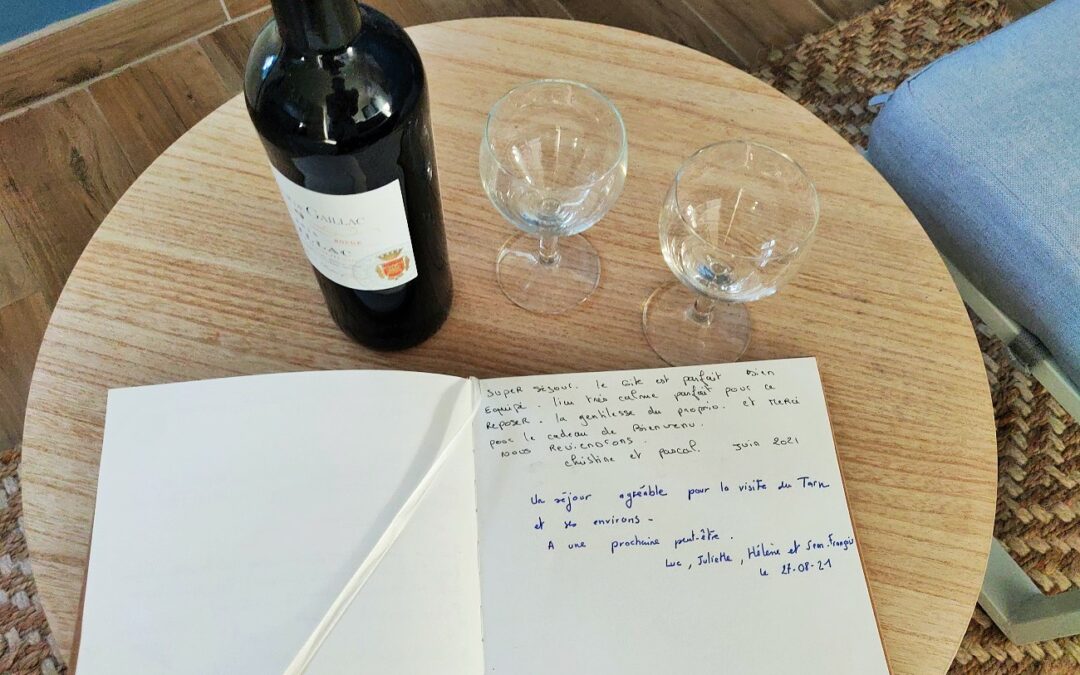 GAILLAC
SUPER SÉJOUR. le Gite est parfait Bien
Equipé. lieu très calme parfait pour ce
REPOSER. la gentillesse du proprio. et MERCI
pour le cadeau de Bienvenu.
NOUS REVIENDRONS.
Christine et pascal. Juin 2021
Un séjour agréable pour la visite du Tarn
et ses environs -
A une prochaine peut-être.
Luc, Juliette, Hélène et Jean-François
le 27-08-21